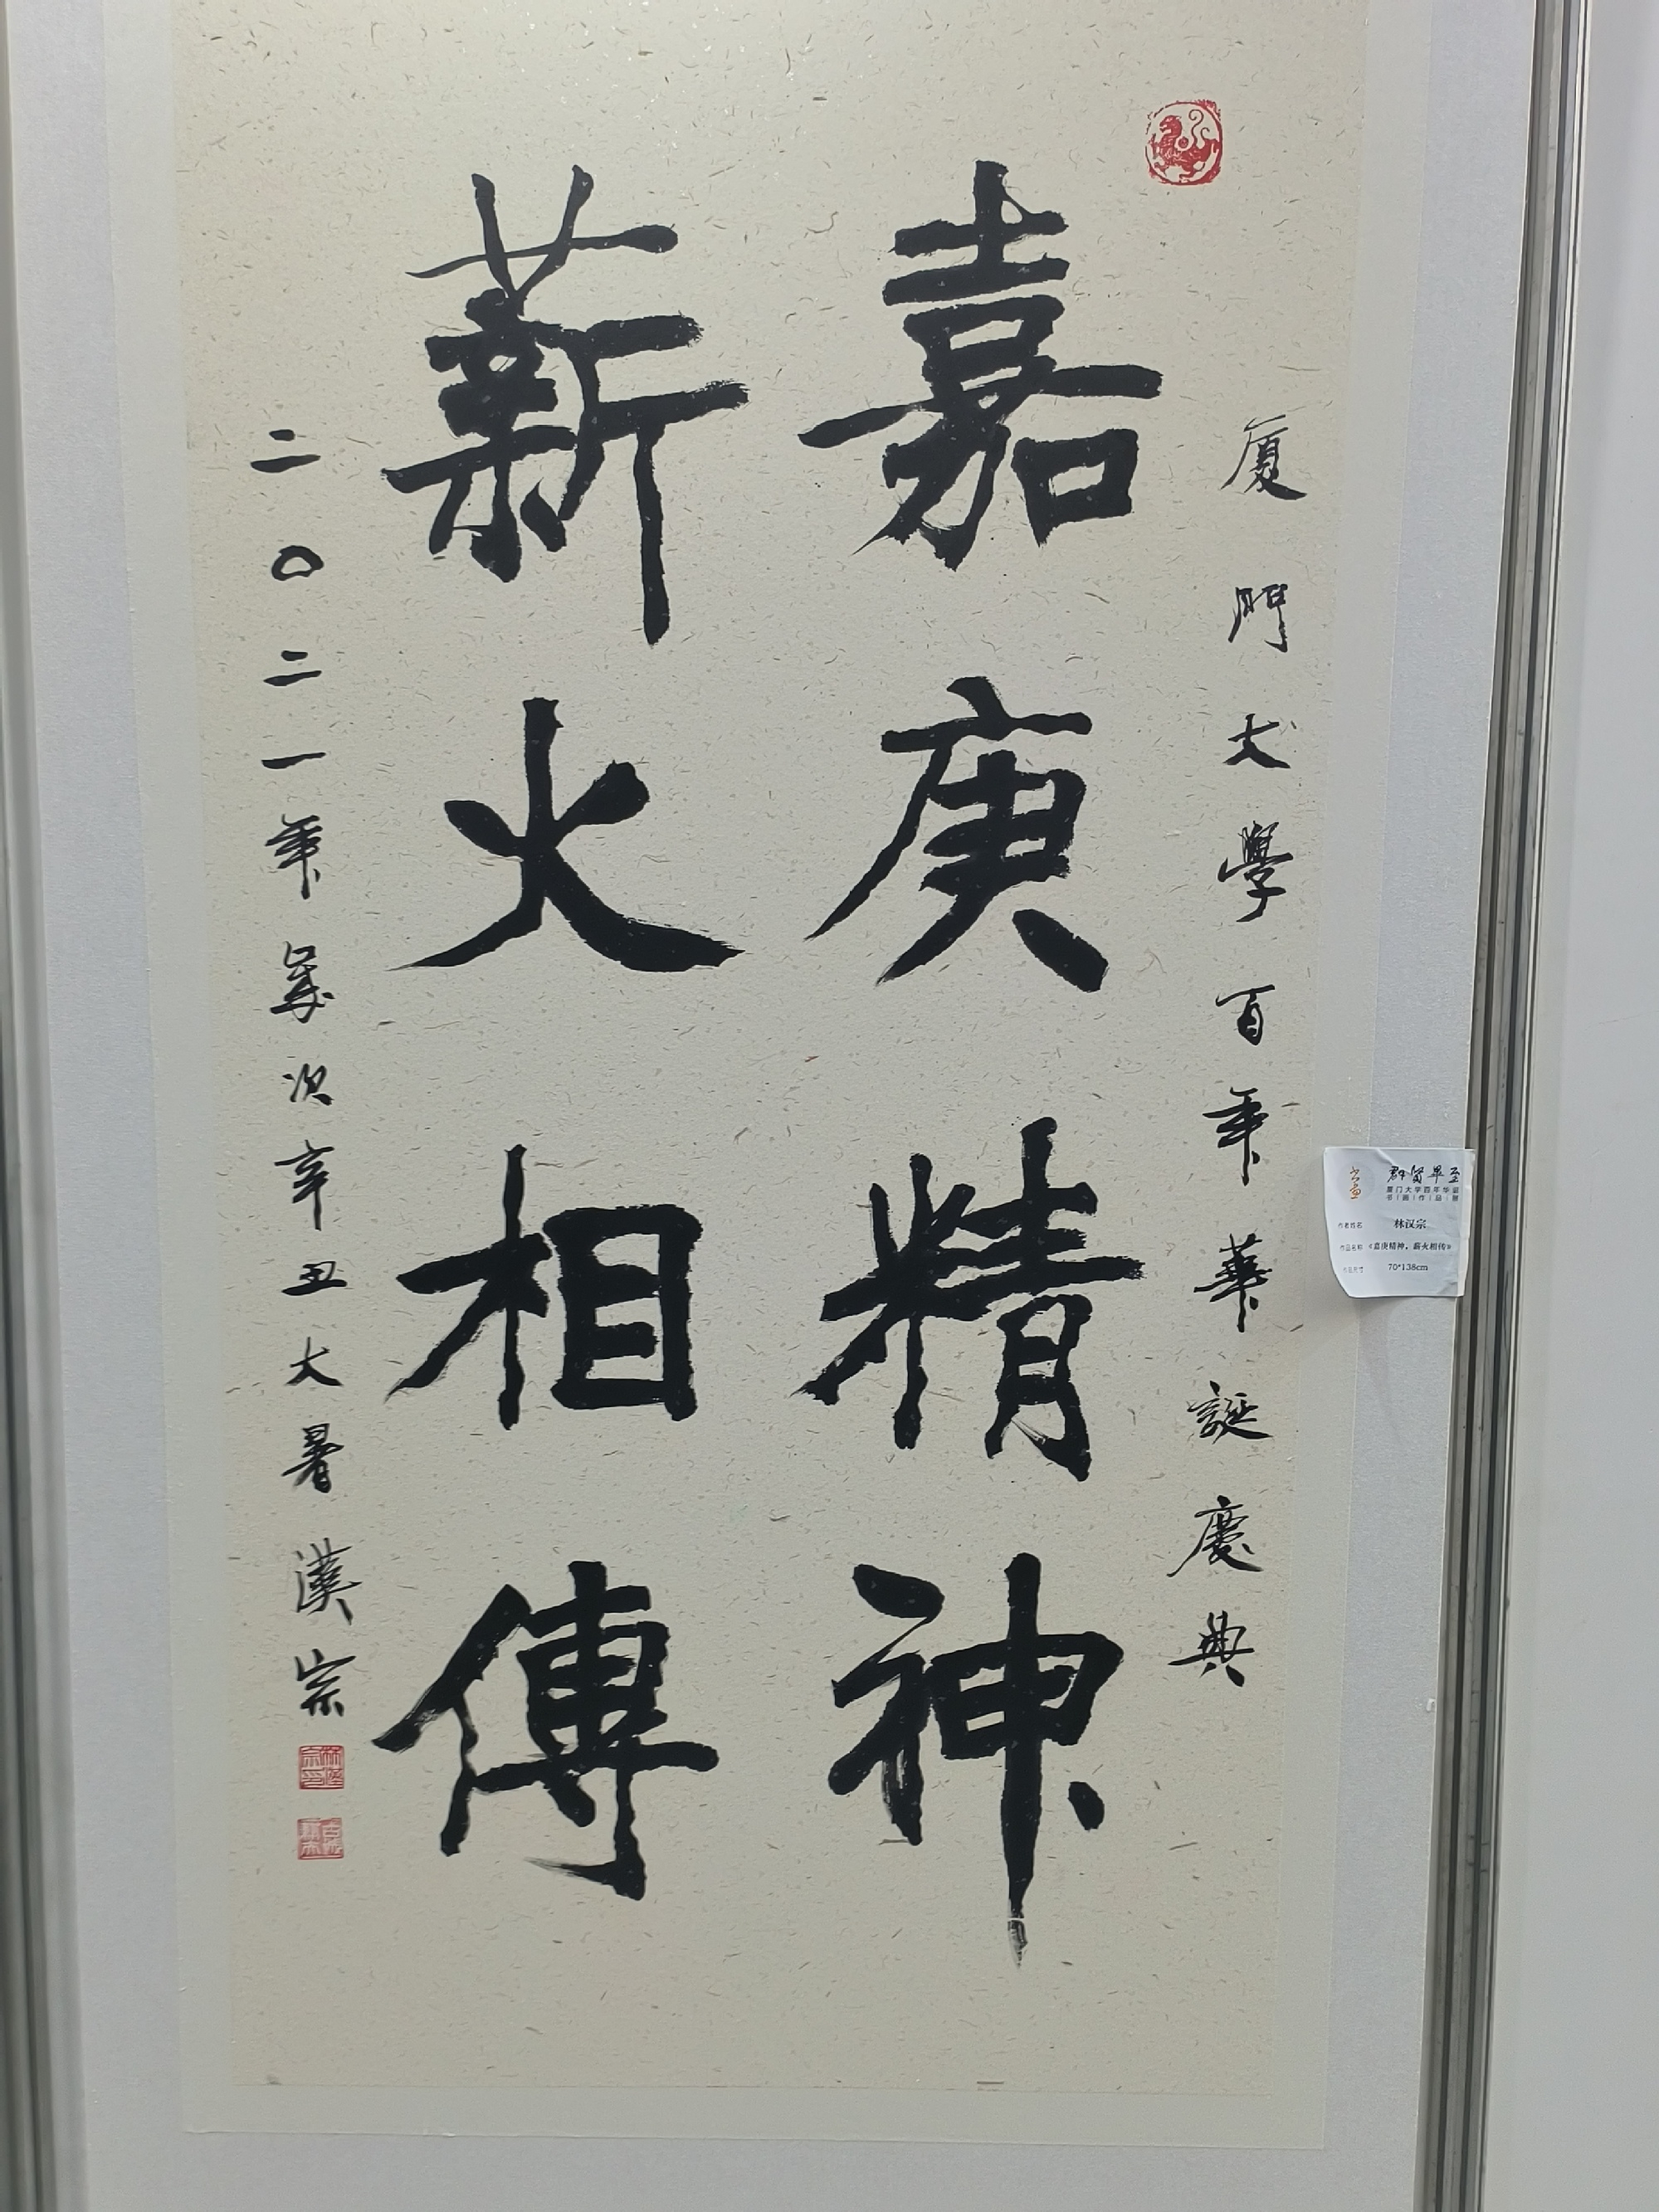 厦門大學百年華誕慶典
嘉庚精神
薪火相傳
二〇二一年歲次辛丑大暑 漢宗
群賢畢至
厦门大学百年华诞
书画作品展
作者姓名 林汉宗
作品名称 《嘉庚精神，薪火相传》
作品尺寸 70*138cm